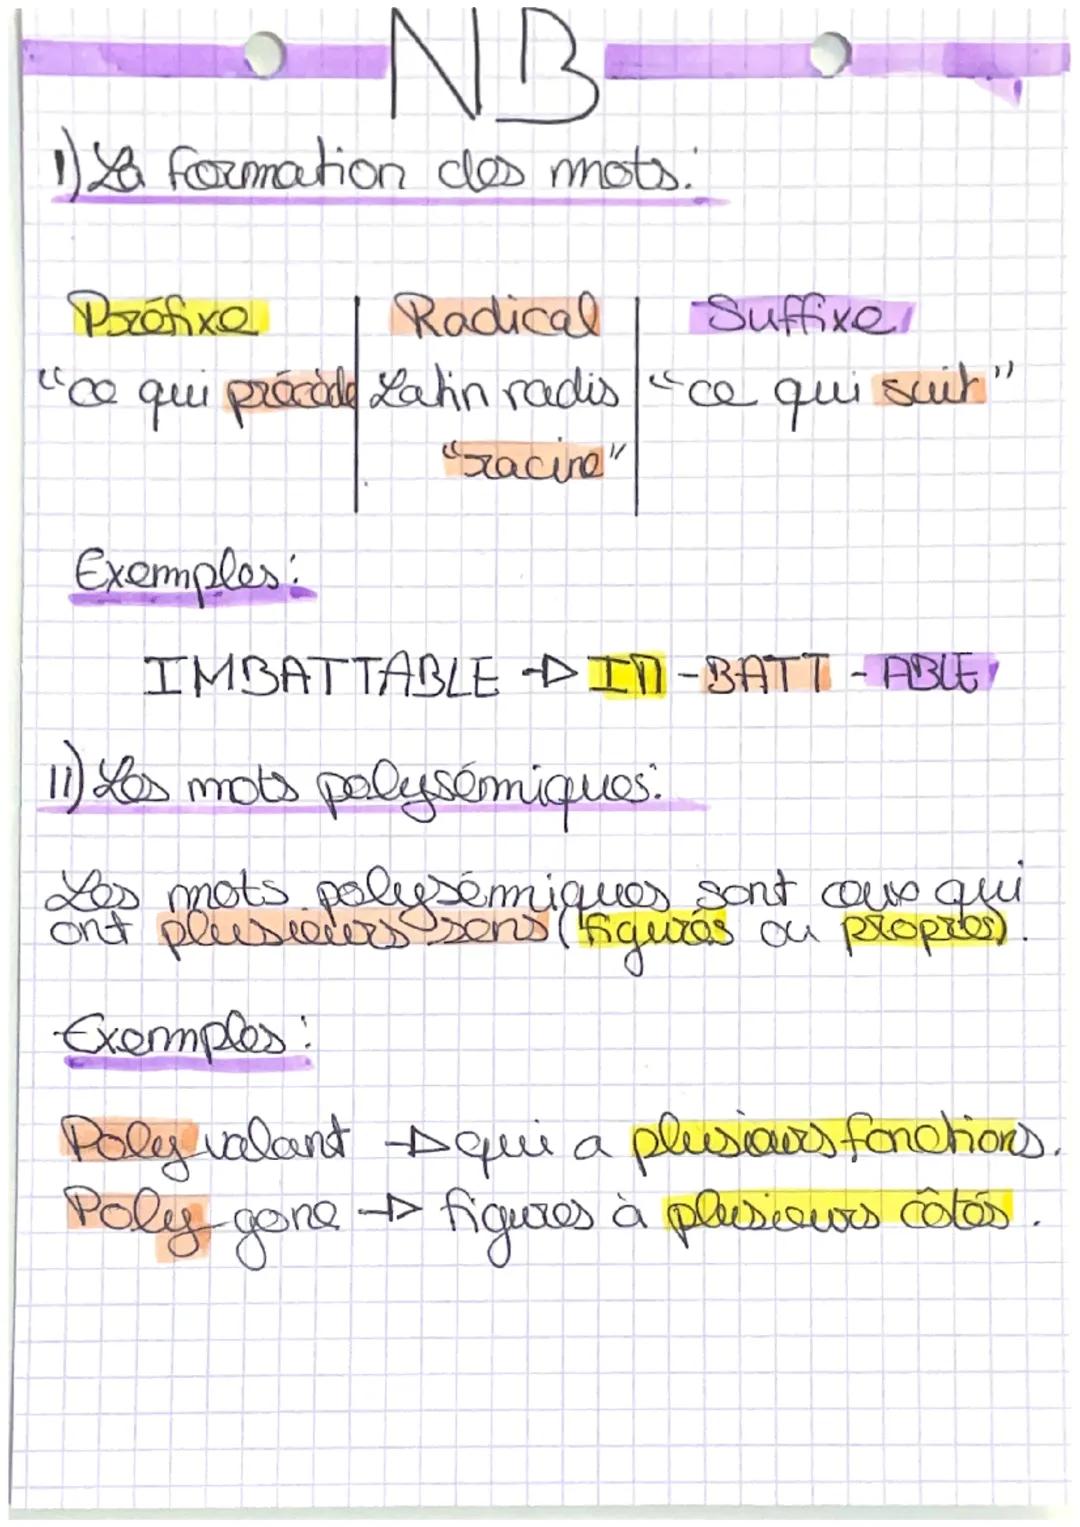 NB
I) La formation des mots:
Préfixe | Radical | Suffixe
"ce qui précède | Latin radis | "ce qui suit"
"racine"
Exemples:
IMBATTABLE → IM - BATT - ABLE
II) Les mots polysémiques:
Les mots polysémiques sont ceux qui
ont plusieurs sens (figurés ou propres).
Exemples:
Poly valant → qui a plusieurs fonctions.
Poly-gone → figures à plusieurs côtés.